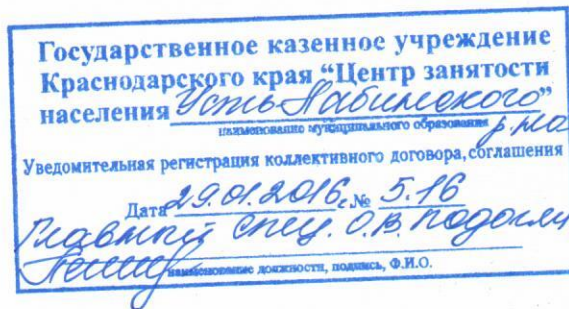 Государственное казенное учреждение
Краснодарского края “Центр занятости
населения Усть-Лабинского”
наименование муниципального образования р-на
Уведомительная регистрация коллективного договора, соглашения
Дата 29.01.2016г. № 5.16
Главный спец. О.В.
наименование должности, подпись, Ф.И.О.